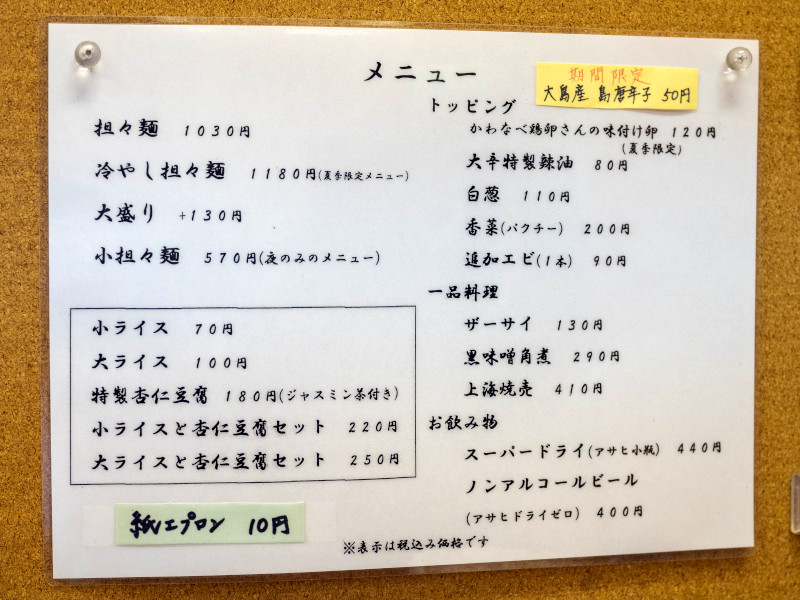 メニュー
担々麺 1030円
冷やし担々麺 1180円(夏季限定メニュー)
大盛り +130円
小担々麺 570円(夜のみのメニュー)
小ライス 70円
大ライス 100円
特製杏仁豆腐 180円(ジャスミン茶付き)
小ライスと杏仁豆腐セット 220円
大ライスと杏仁豆腐セット 250円
紙エプロン 10円
期間限定
大島産 島唐辛子 50円
トッピング
かわなべ鶏卵さんの味付け卵 120円
(夏季限定)
大辛特製辣油 80円
白葱 110円
香菜(パクチー) 200円
追加エビ(1本) 90円
一品料理
ザーサイ 130円
黒味噌角煮 290円
上海焼売 410円
お飲み物
スーパードライ(アサヒ小瓶) 440円
ノンアルコールビール
(アサヒドライゼロ) 400円
※表示は税込み価格です